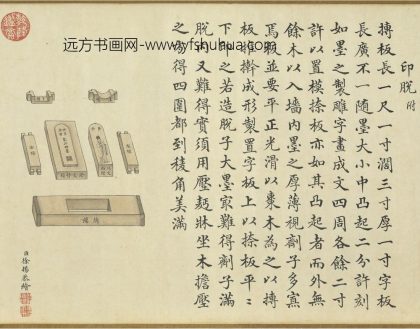 远方书画网-www.yfshuhua.com
印脱 附
搏板長一尺一寸濶三寸厚一寸字板
長廣不一随墨大小中凸起二分許刻
如墨之製雕字畫成文四周各餘二寸
許以置模捺板亦如其凸起者而外無
餘木以入墻内墨之厚薄視劑子多寡
焉板並要平正光滑以棗木為之以搏
板推擀成形製置字板上以捺板平平
下捺之若造脱子大墨最難得劑子滿
脱又難得實須用壓麪牀坐木擔壓
之方得四圍都到稜角美滿
臣徐揚恭繪